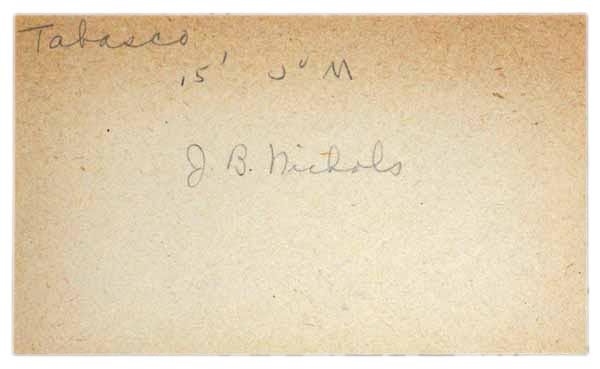 Tabasco
15' J° M
J. B. Nichols